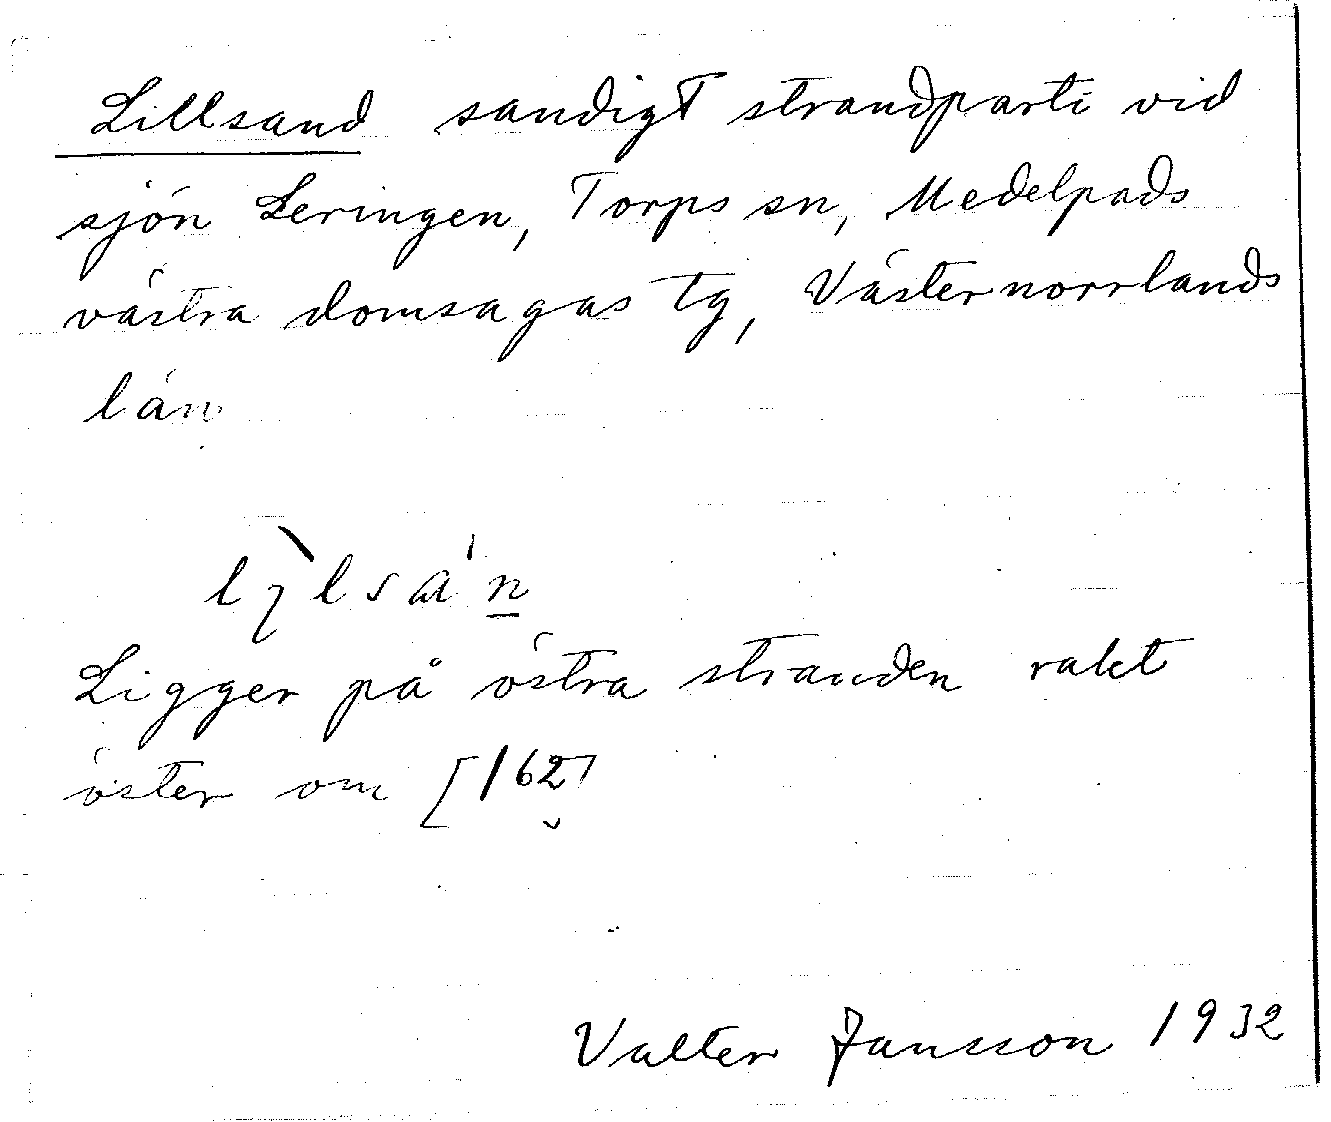 Lillsand sandigt strandparti vid
sjön Leringen, Torps sn, Medelpads
västra domsagas tg, Västernorrlands
län
Ligger på östra stranden rakt
öster om [162]
Valter Jansson 1932